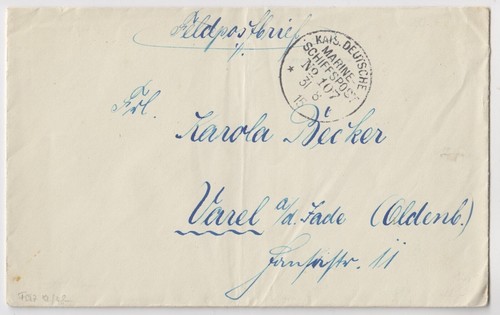 Feldpostbrief
KAIS. DEUTSCHE
MARINE-
SCHIFFSPOST
No 107
31 8
15
Frl.
Karola Becker
Varel a/d. Jade (Oldenb.)
11